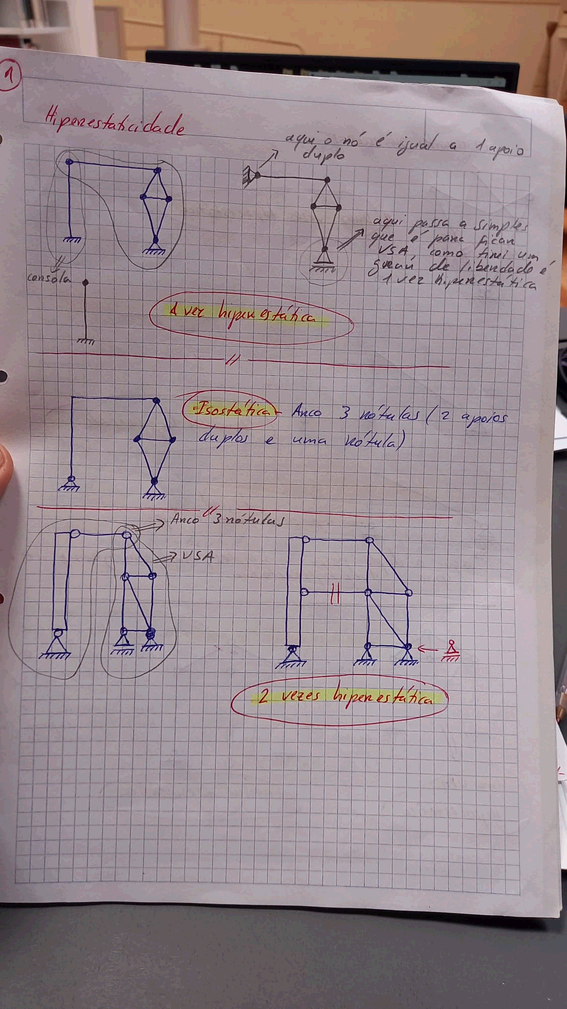 1
Hiperestaticidade
aqui o nó é igual a 1 apoio
duplo
aqui passa a simples
que é para ficar
VSA, como tirei um
grau de liberdade é
1 vez hiperestática
consola
1 vez hiperestática
Isostática - Arco 3 rótulas (2 apoios
duplos e uma rótula)
Arco 3 rótulas
VSA
2 vezes hiperestática